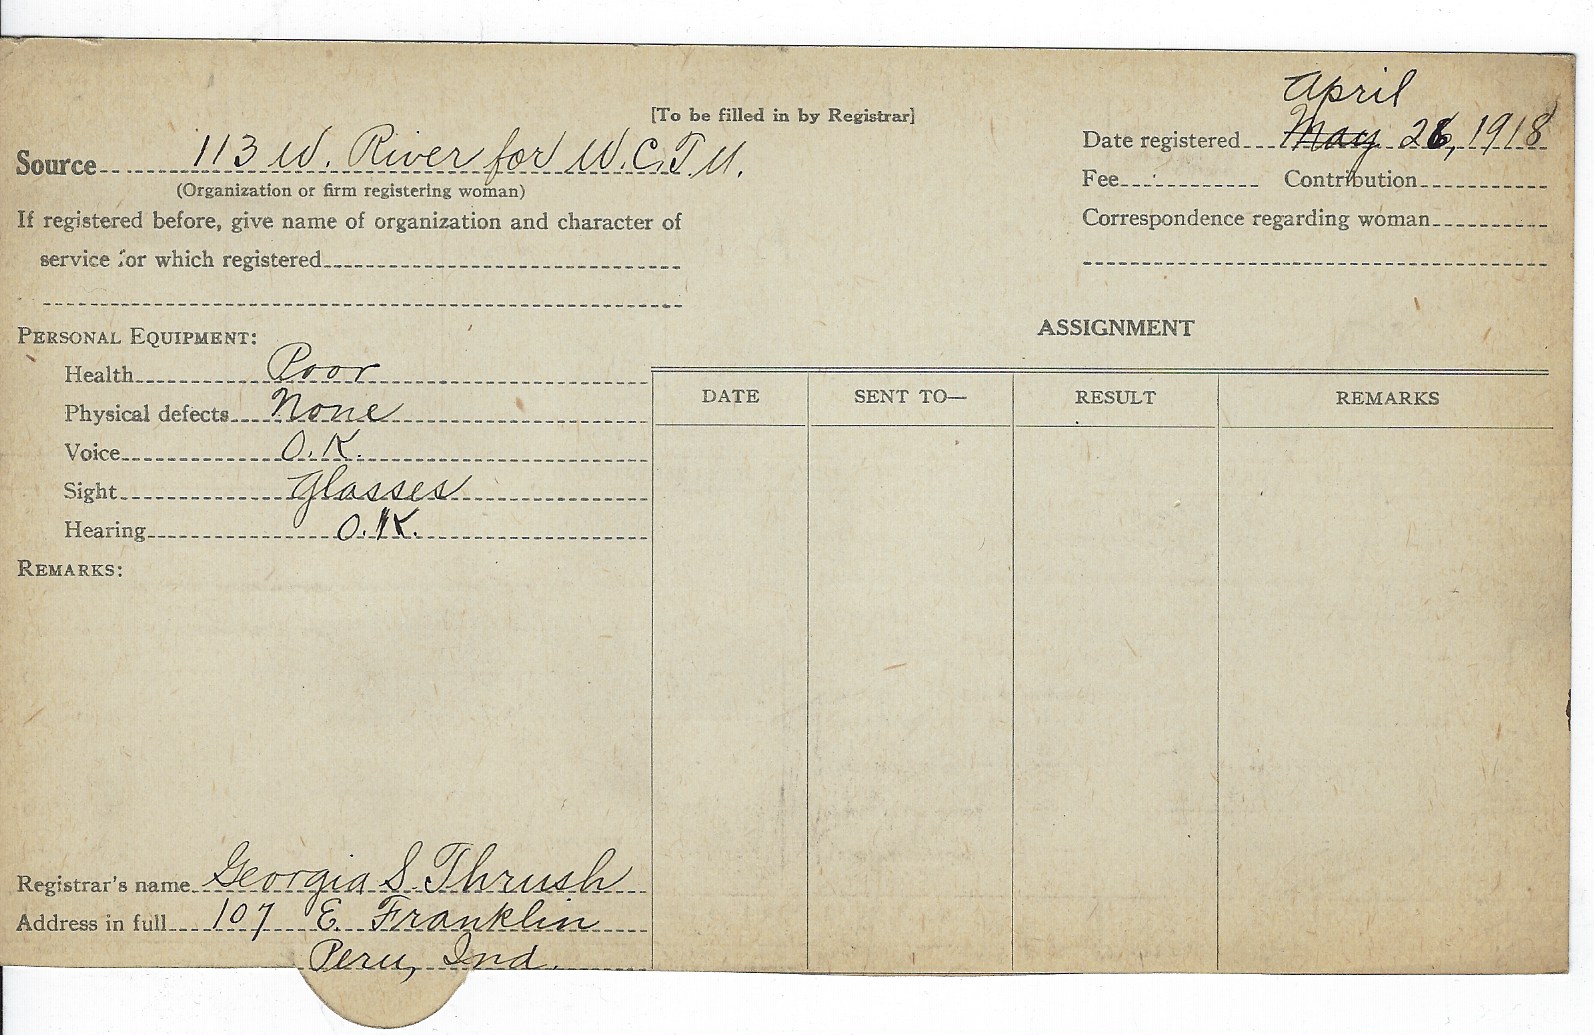 [To be filled in by Registrar]
April
Date registered May 26, 1918
Source 113 W. River for W.C.T.U.
(Organization or firm registering woman)
Fee Contribution
If registered before, give name of organization and character of
service for which registered
Correspondence regarding woman
PERSONAL EQUIPMENT:
Health Poor
Physical defects None
Voice O.K.
Sight Glasses
Hearing O.K.
REMARKS:
ASSIGNMENT
DATE SENT TO— RESULT REMARKS
Registrar's name Georgia S. Thrush
Address in full 107 E. Franklin
Peru, Ind.